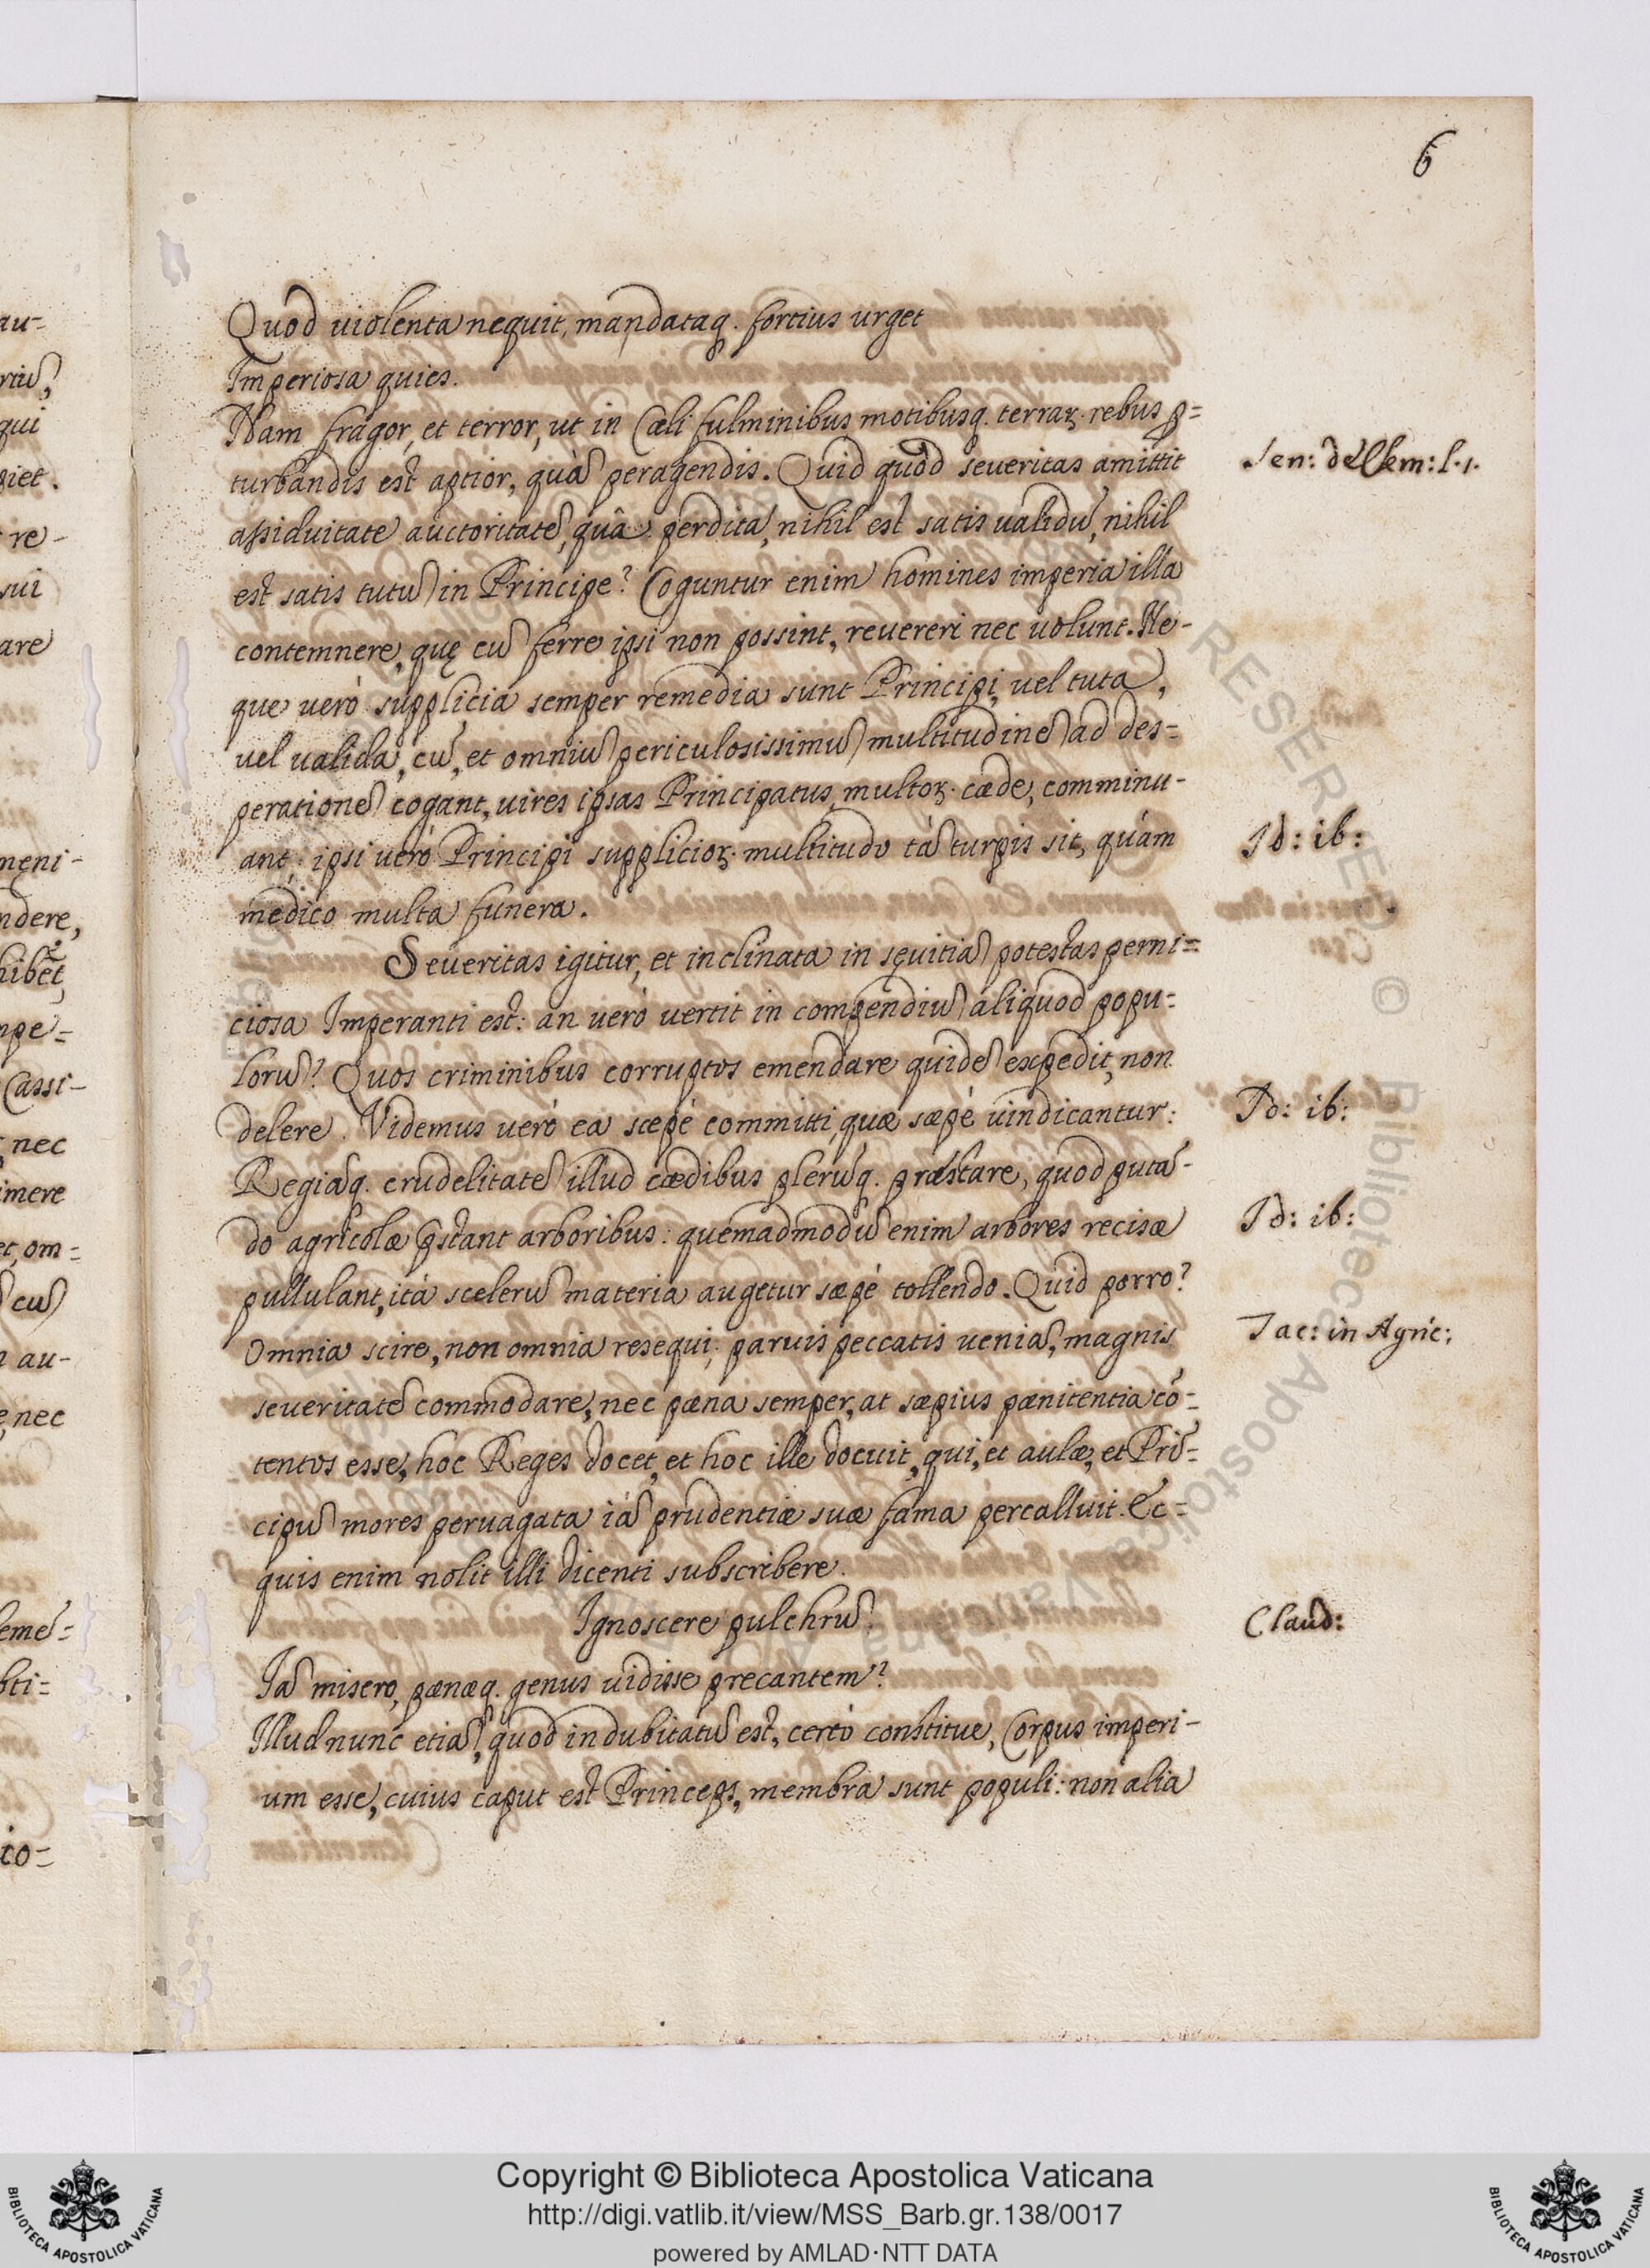 6
Quod violenta nequit, mandataq. fortius urget
Imperiosa quies.
Nam fragor, et terror, ut in Cæli fulminibus motibusq. terrarꝝ. rebus ꝑ=
turbandis est aptior, quã peragendis. Quid quòd seueritas amittit
Sen: de Clem: l. 1.
assiduitate auctoritatẽ, quâ perdita, nihil est satis ualidũ, nihil
est satis tutũ in Principe? Coguntur enim homines imperia illa
contemnere, quę cũ ferre ipsi non possint, reuereri nec uolunt. Ne-
que uerò supplicia semper remedia sunt Principi, uel tuta,
uel ualida, cũ, et omniũ periculosissimũ multitudinẽ ad des=
perationẽ cogant, uires ipsas Principatus, multoꝝ. cæde, comminu-
ant; ipsi uerò Principi supplicioꝝ. multitudo tã turpis sit, quám
Id: ib:
medico multa funera.
Seueritas igitur, et inclinata in sęuitiã potestas perni=
ciosa Imperanti est: an uerò uertit in compendiũ aliquod popu=
lorũ? Quos criminibus corruptos emendare quidẽ expedit, non
delere. Videmus uerò ea sæpè committi, quæ sæpè uindicantur:
Id: ib:
Regiãq. crudelitatẽ illud cædibus plerũq. præstare, quod putã-
do agricolæ p̃stant arboribus: quemadmodũ enim arbores recisæ
Id: ib:
pullulant, ità scelerũ materia augetur sæpè tollendo. Quid porro?
Omnia scire, non omnia resequi; paruis peccatis ueniã, magnis
Tac: in Agric:
seueritatẽ commodare, nec pæna semper, at sæpius pænitentia cõ-
tentos esse, hoc Reges docet, et hoc ille docuit, qui, et aulæ, et Prĩ-
cipũ mores peruagata iã prudentiæ suæ fama percalluit. Ec=
quis enim nolit illi dicenti subscribere.
Ignoscere pulchrũ
Claud:
Iã misero, pænæq. genus uidisse precantem?
Illud nunc etiã, quod indubitatũ est, certò constitue, Corpus imperi-
um esse, cuius caput est Princeps, membra sunt populi: non alia
Copyright © Biblioteca Apostolica Vaticana
http://digi.vatlib.it/view/MSS_Barb.gr.138/0017
powered by AMLAD·NTT DATA
BIBLIOTECA APOSTOLICA VATICANA
BIBLIOTECA APOSTOLICA VATICANA